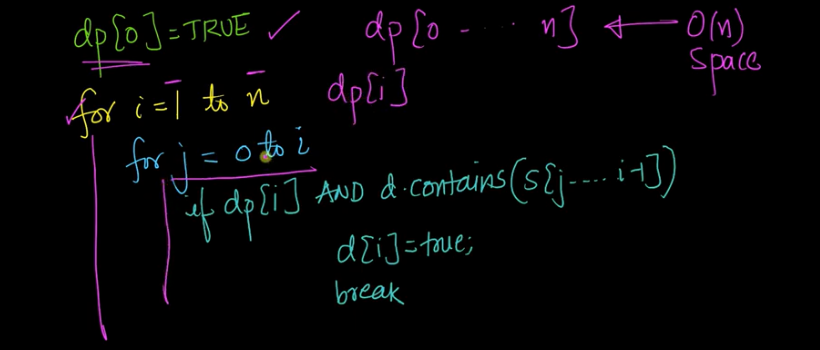 dp[0] = TRUE ✓ dp[0 - ···· n] ← O(n) Space
for i = 1 to n dp[i]
for j = 0 to i
if dp[i] AND d.contains(S[j----i-1])
d[i] = true;
break